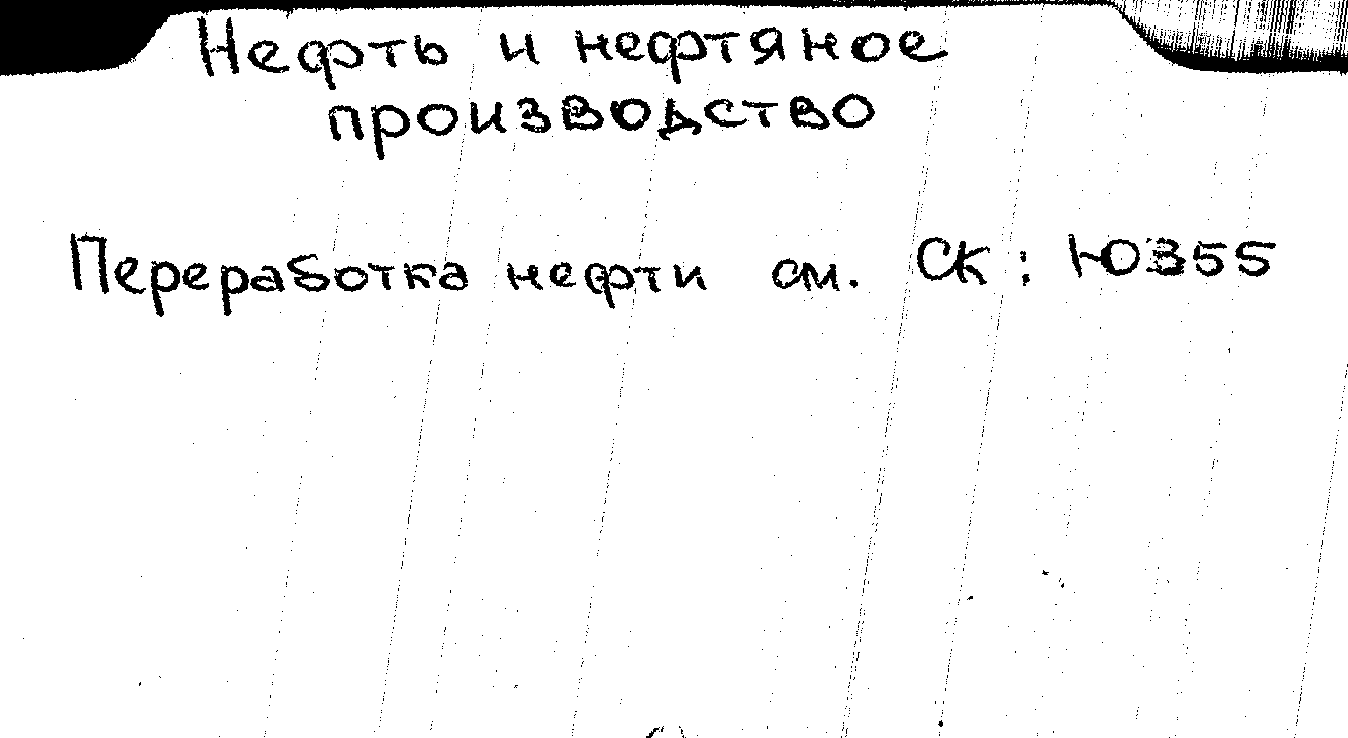 Нефть и нефтяное
производство
Переработка нефти см. СК: Ю355